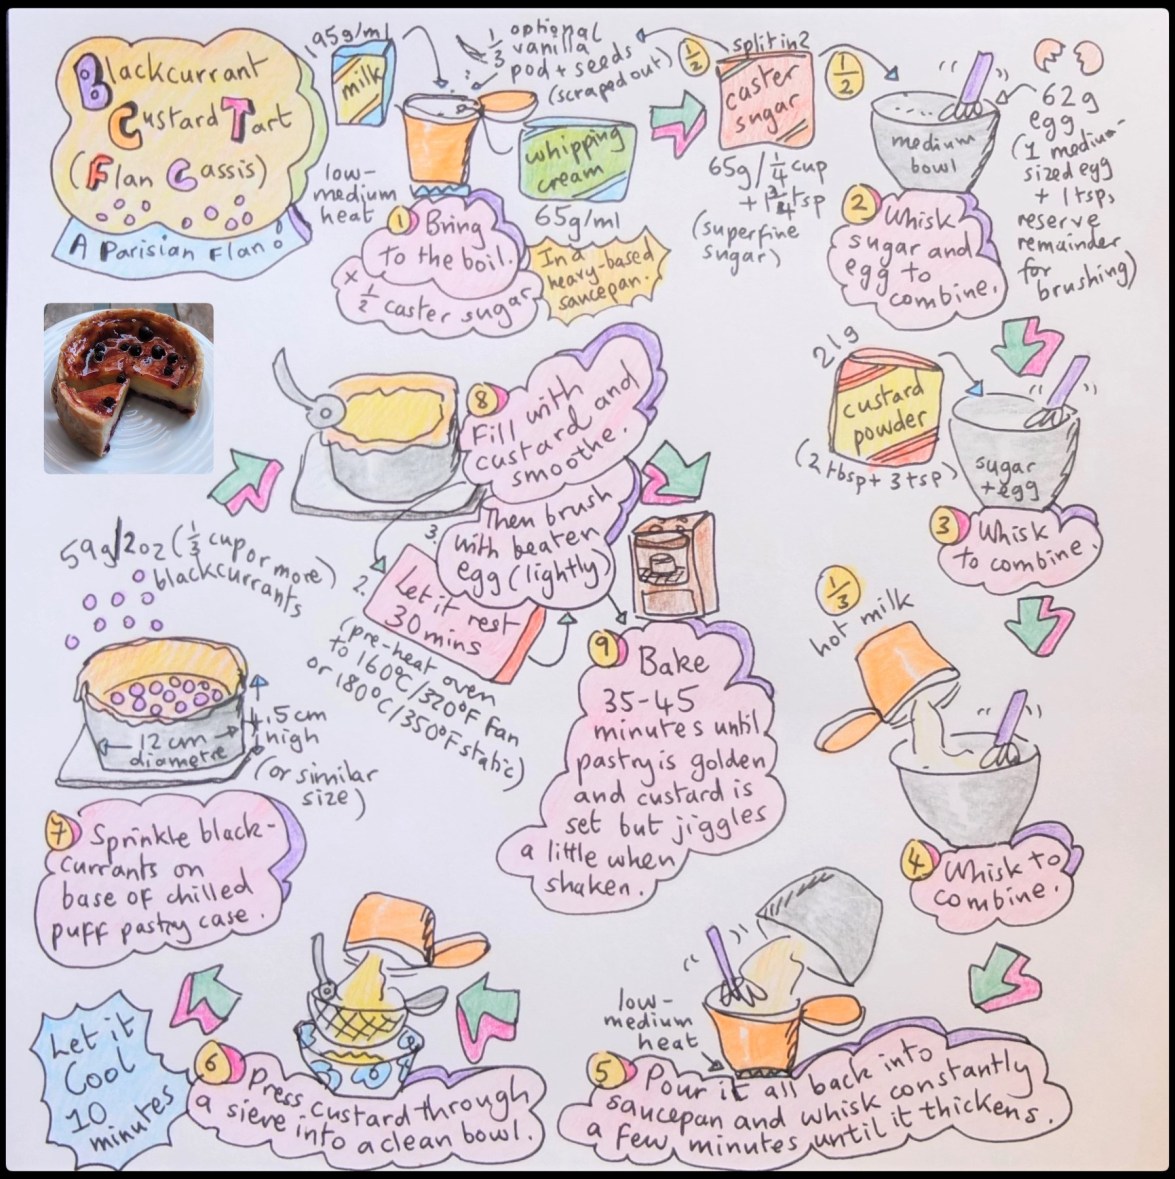 Blackcurrant
Custard Tart
(Flan Cassis)
A Parisian Flan!
195g/ml
milk
1/3 optional
vanilla
pod + seeds
(scraped out)
low-
medium
heat
whipping
cream
65g/ml
1 Bring
to the boil.
x 1/2 caster sugar
In a
heavy-based
saucepan.
1/2
split in 2
1/2
caster
sugar
65g/1/4 cup
+ 1 3/4 tsp
(superfine
sugar)
medium
bowl
62g
egg
(1 medium-
sized egg
+ 1 tsp,
reserve
remainder
for
brushing)
2 Whisk
sugar and
egg to
combine.
21g
custard
powder
(2 tbsp + 3 tsp)
sugar
+ egg
3 Whisk
to combine.
1/3
hot milk
4 Whisk to
combine.
low-
medium
heat
5 Pour it all back into
saucepan and whisk constantly
a few minutes until it thickens.
6 Press custard through
a sieve into a clean bowl.
Let it
Cool
10
minutes
59g/2oz (1/3 cup or more)
blackcurrants
12 cm
diametre
4.5cm
high
(or similar
size)
7 Sprinkle black-
currants on
base of chilled
puff pastry case.
8 Fill with
custard and
smoothe.
3. Then brush
with beaten
egg (lightly)
2. Let it rest
30 mins
(pre-heat oven
to 160°C/320°F fan
or 180°C/350°F static)
9 Bake
35-45
minutes until
pastry is golden
and custard is
set but jiggles
a little when
shaken.